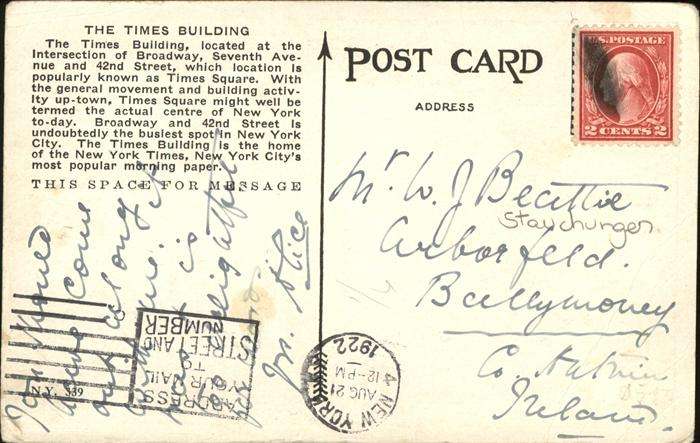 THE TIMES BUILDING
The Times Building, located at the
Intersection of Broadway, Seventh Ave-
nue and 42nd Street, which location is
popularly known as Times Square. With
the general movement and building activ-
ity up-town, Times Square might well be
termed the actual centre of New York
to-day. Broadway and 42nd Street is
undoubtedly the busiest spot in New York
City. The Times Building is the home
of the New York Times, New York City's
most popular morning paper.
THIS SPACE FOR MESSAGE
You should
have come
out along
with me. it
is
delightful
Jn. Alice
N.Y. 339
ADDRESS
YOUR MAIL
TO
STREET AND
NUMBER
POST CARD
ADDRESS
U.S. POSTAGE
2 CENTS 2
Mr W. J. Beattie
Staychurgen
Arborfeld.
Ballymoney
Co. Antrim
Ireland.
NEW YORK
AUG 21
12-PM
1922